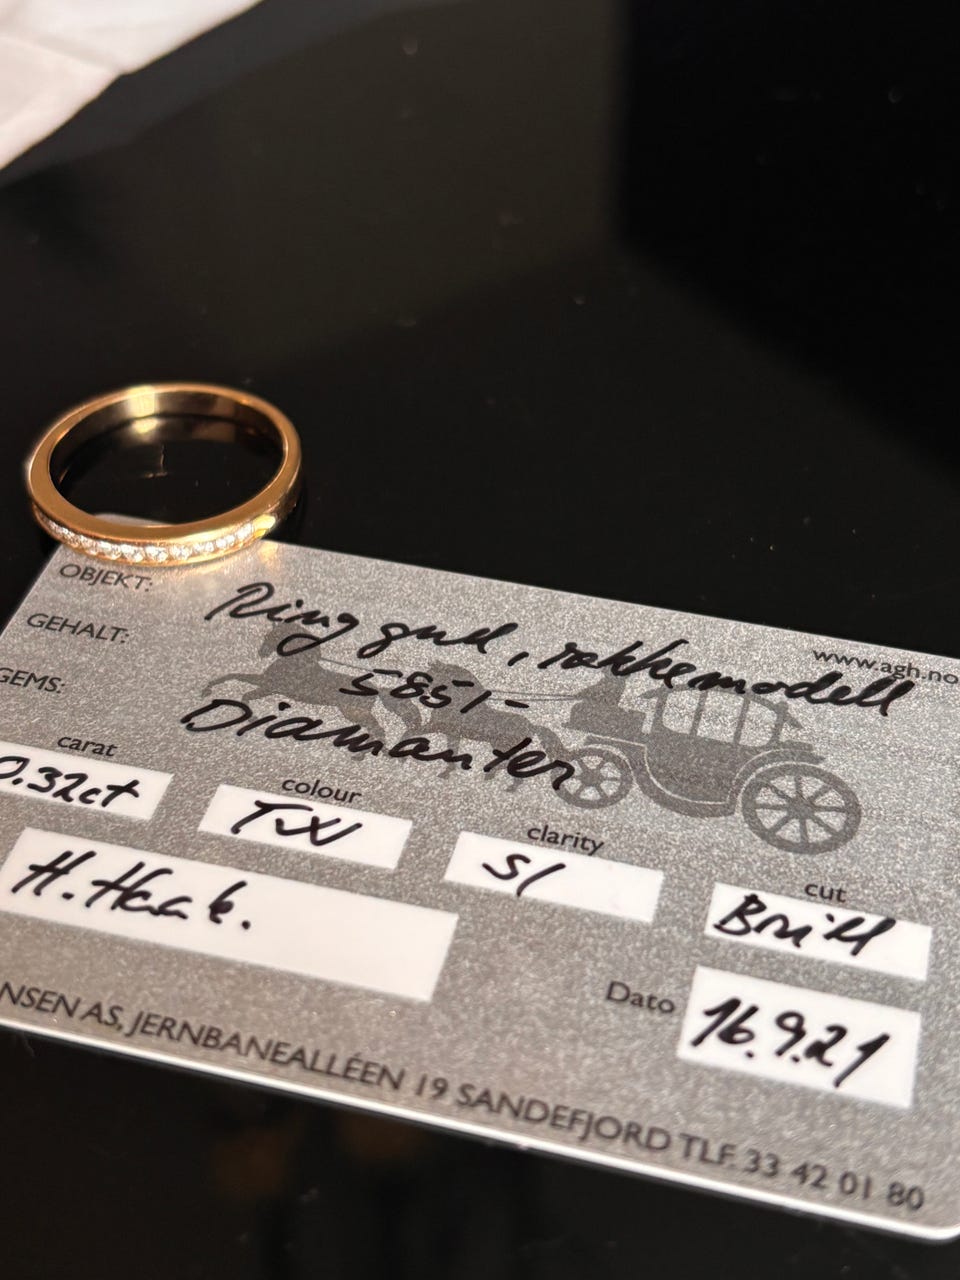 OBJEKT: Ring gull, rekkemodell
www.agh.no
GEHALT: 585/-
GEMS: Diamanter
carat colour clarity cut
0.32ct TW SI Brill
H. Haak.
Dato 16.9.21
NSEN AS, JERNBANEALLÉEN 19 SANDEFJORD TLF. 33 42 01 80